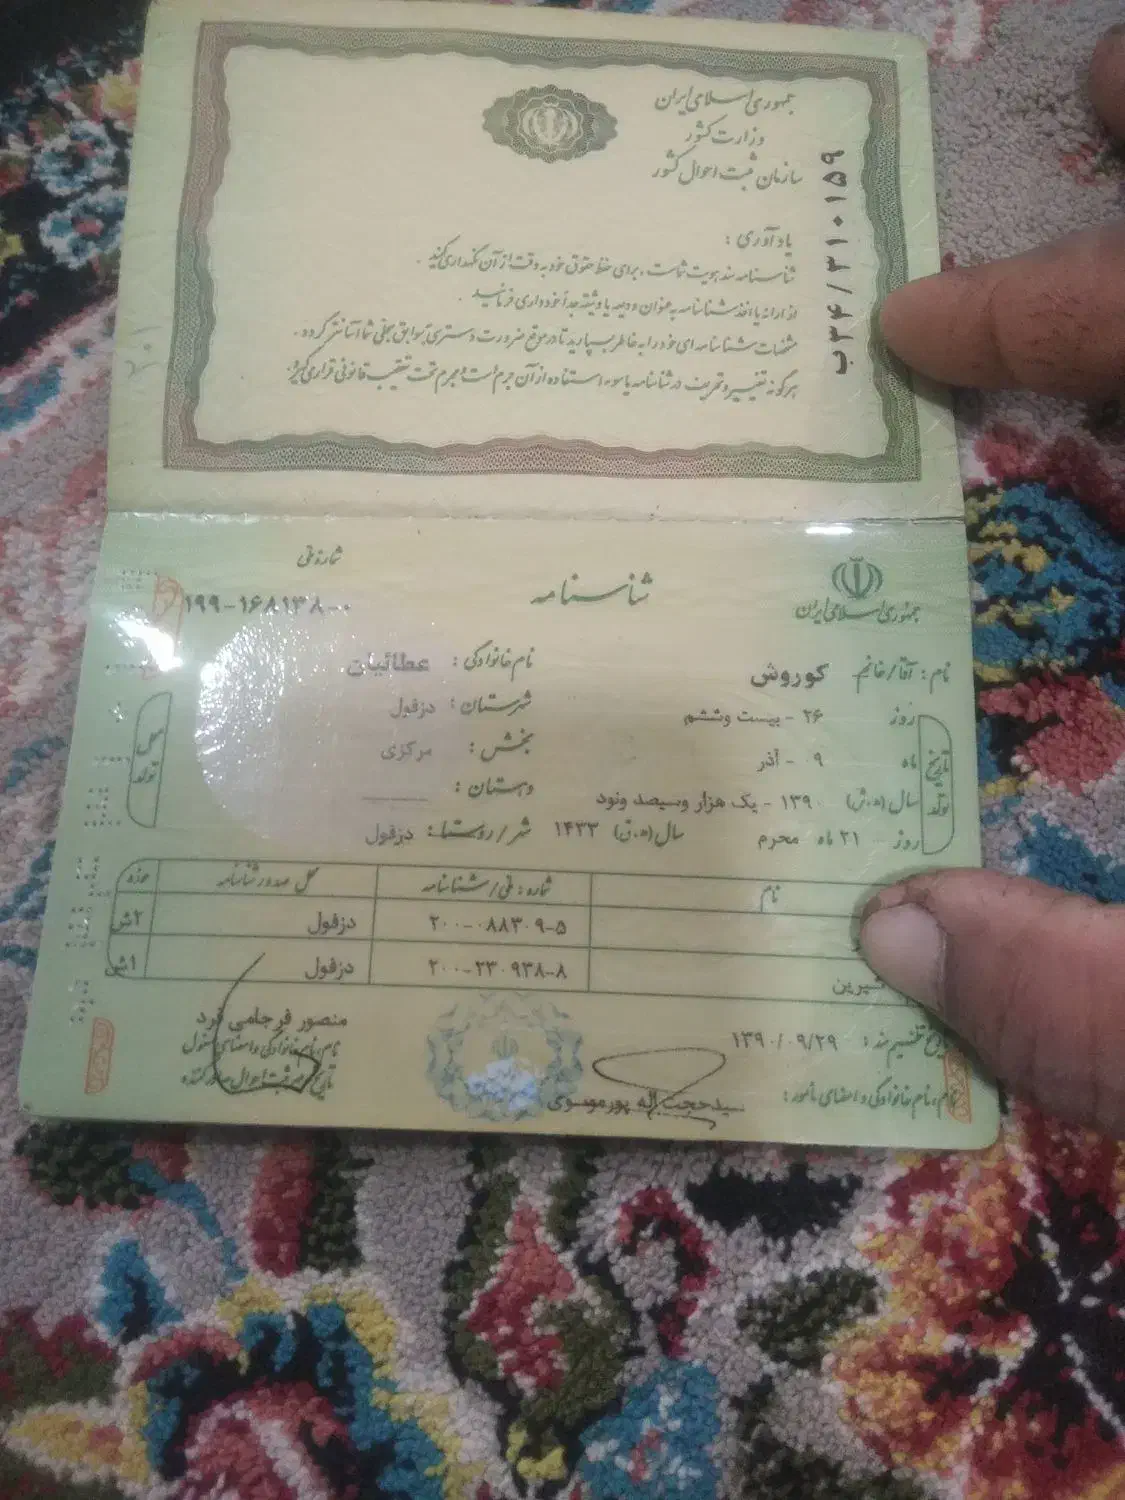 جمهوری اسلامی ایران
وزارت کشور
سازمان ثبت احوال کشور
ب۳۴/۲۱۰۱۵۹
یادآوری :
شناسنامه سند هویت شماست ، برای حفظ حقوق خود به دقت از آن نگهداری کنید .
از ارائه یا اخذ شناسنامه به عنوان ودیعه یا وثیقه جداً خودداری فرمائید .
مشخصات شناسنامه ای خود را به خاطر بسپارید تا در موقع ضرورت دسترسی به سوابق سجلی شما آسانتر گردد .
هرگونه تغییر و تحریف در شناسنامه یا سوء استفاده از آن جرم است و مجرم تحت تعقیب قانونی قرار می گیرد
جمهوری اسلامی ایران
شناسنامه
شماره ملی
۱۹۹-۱۶۸۱۳۸-۰
نام : آقا/خانم کوروش
نام خانوادگی : عطائیان
تاریخ تولد
روز ۲۶ - بیست وششم
ماه ۰۹ - آذر
سال (ه.ش) ۱۳۹۰ - یک هزار وسیصد ونود
روز ۲۱ ماه محرم سال (ه.ق) ۱۴۳۳
محل تولد
شهرستان : دزفول
بخش : مرکزی
دهستان :
شهر/روستا : دزفول
نام شماره : ملی/شناسنامه محل صدور شناسنامه حوزه
۲۰۰-۰۸۸۳۰۹-۵ دزفول ۲ش
شیرین ۲۰۰-۲۳۰۹۳۸-۸ دزفول ۱ش
تاریخ تنظیم سند : ۱۳۹۰/۰۹/۲۹
نام، نام خانوادگی و امضای مأمور : سیدحجت اله پورموسوی
منصور فرجامی فرد
نام، نام خانوادگی و امضای مسئول